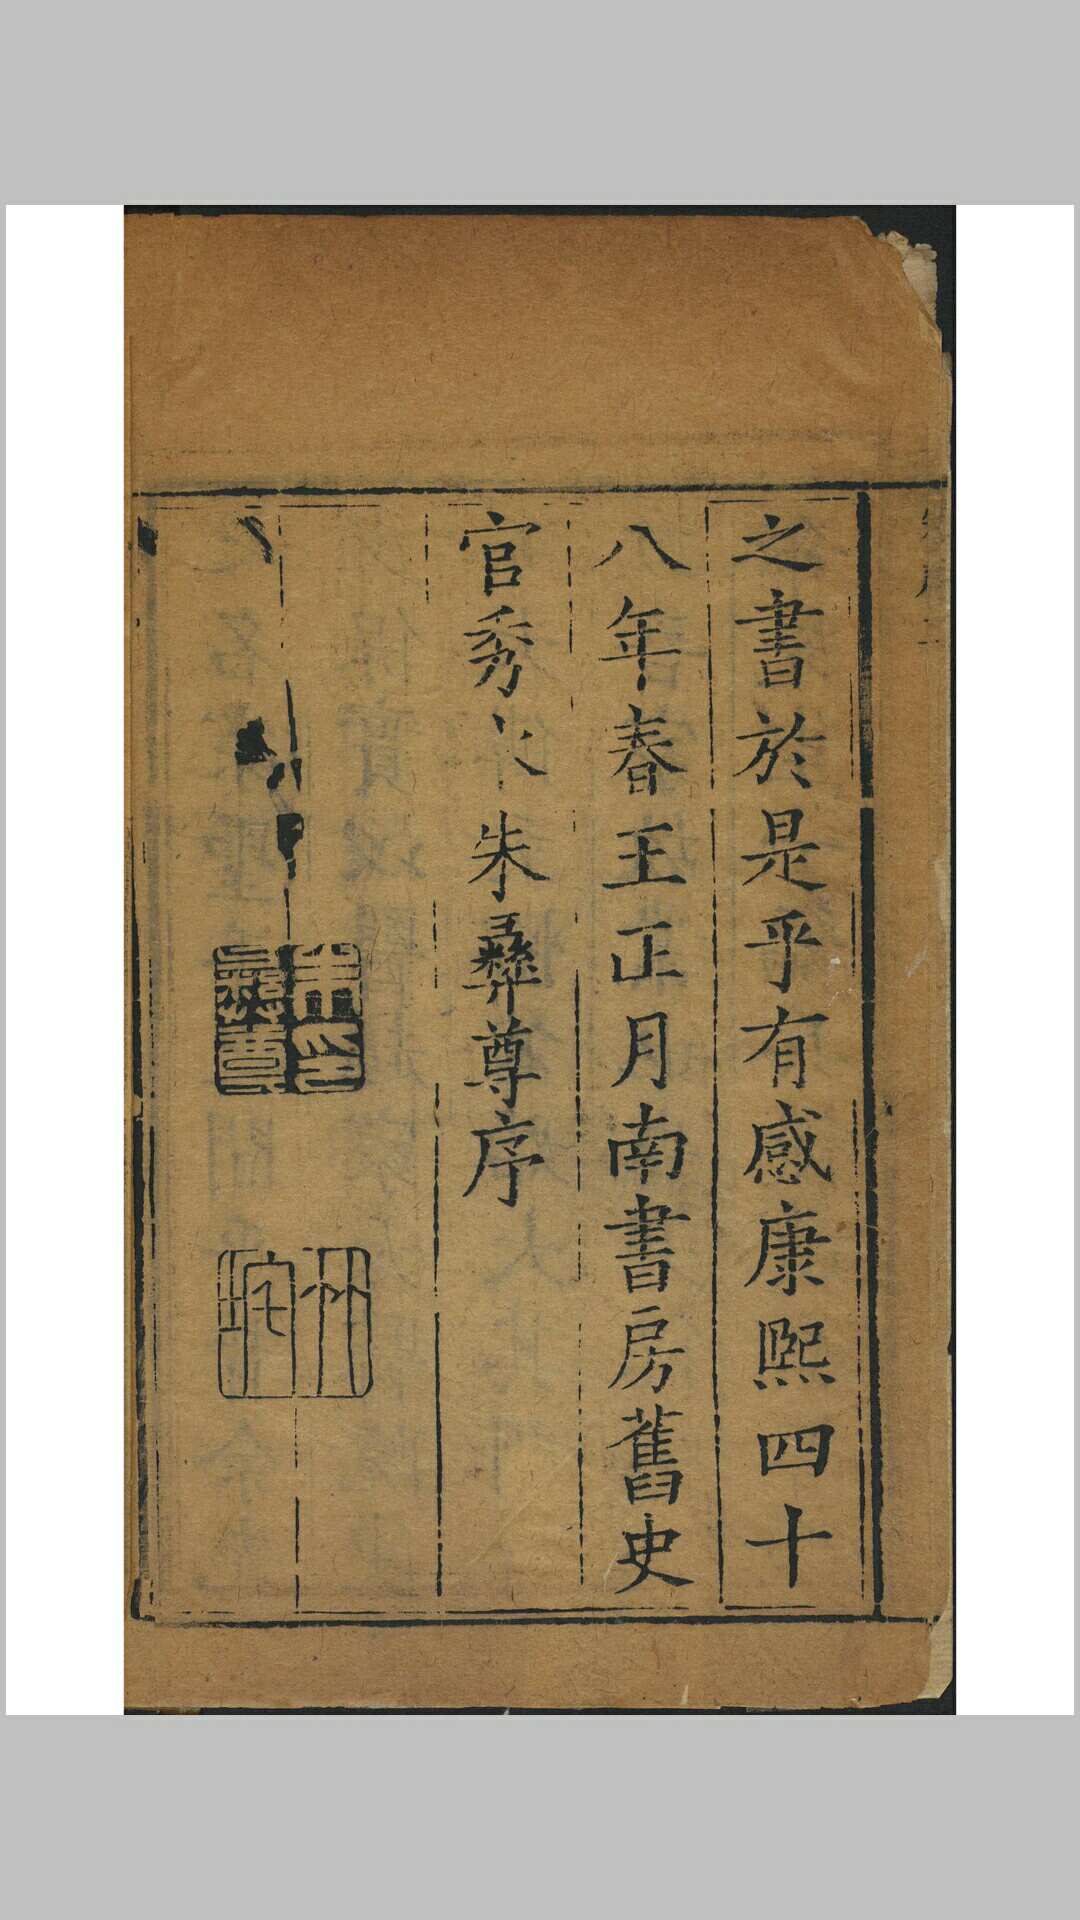 之書於是乎有感康熙四十
八年春王正月南書房舊史
官秀水朱彝尊序
朱印
彝尊
竹
垞